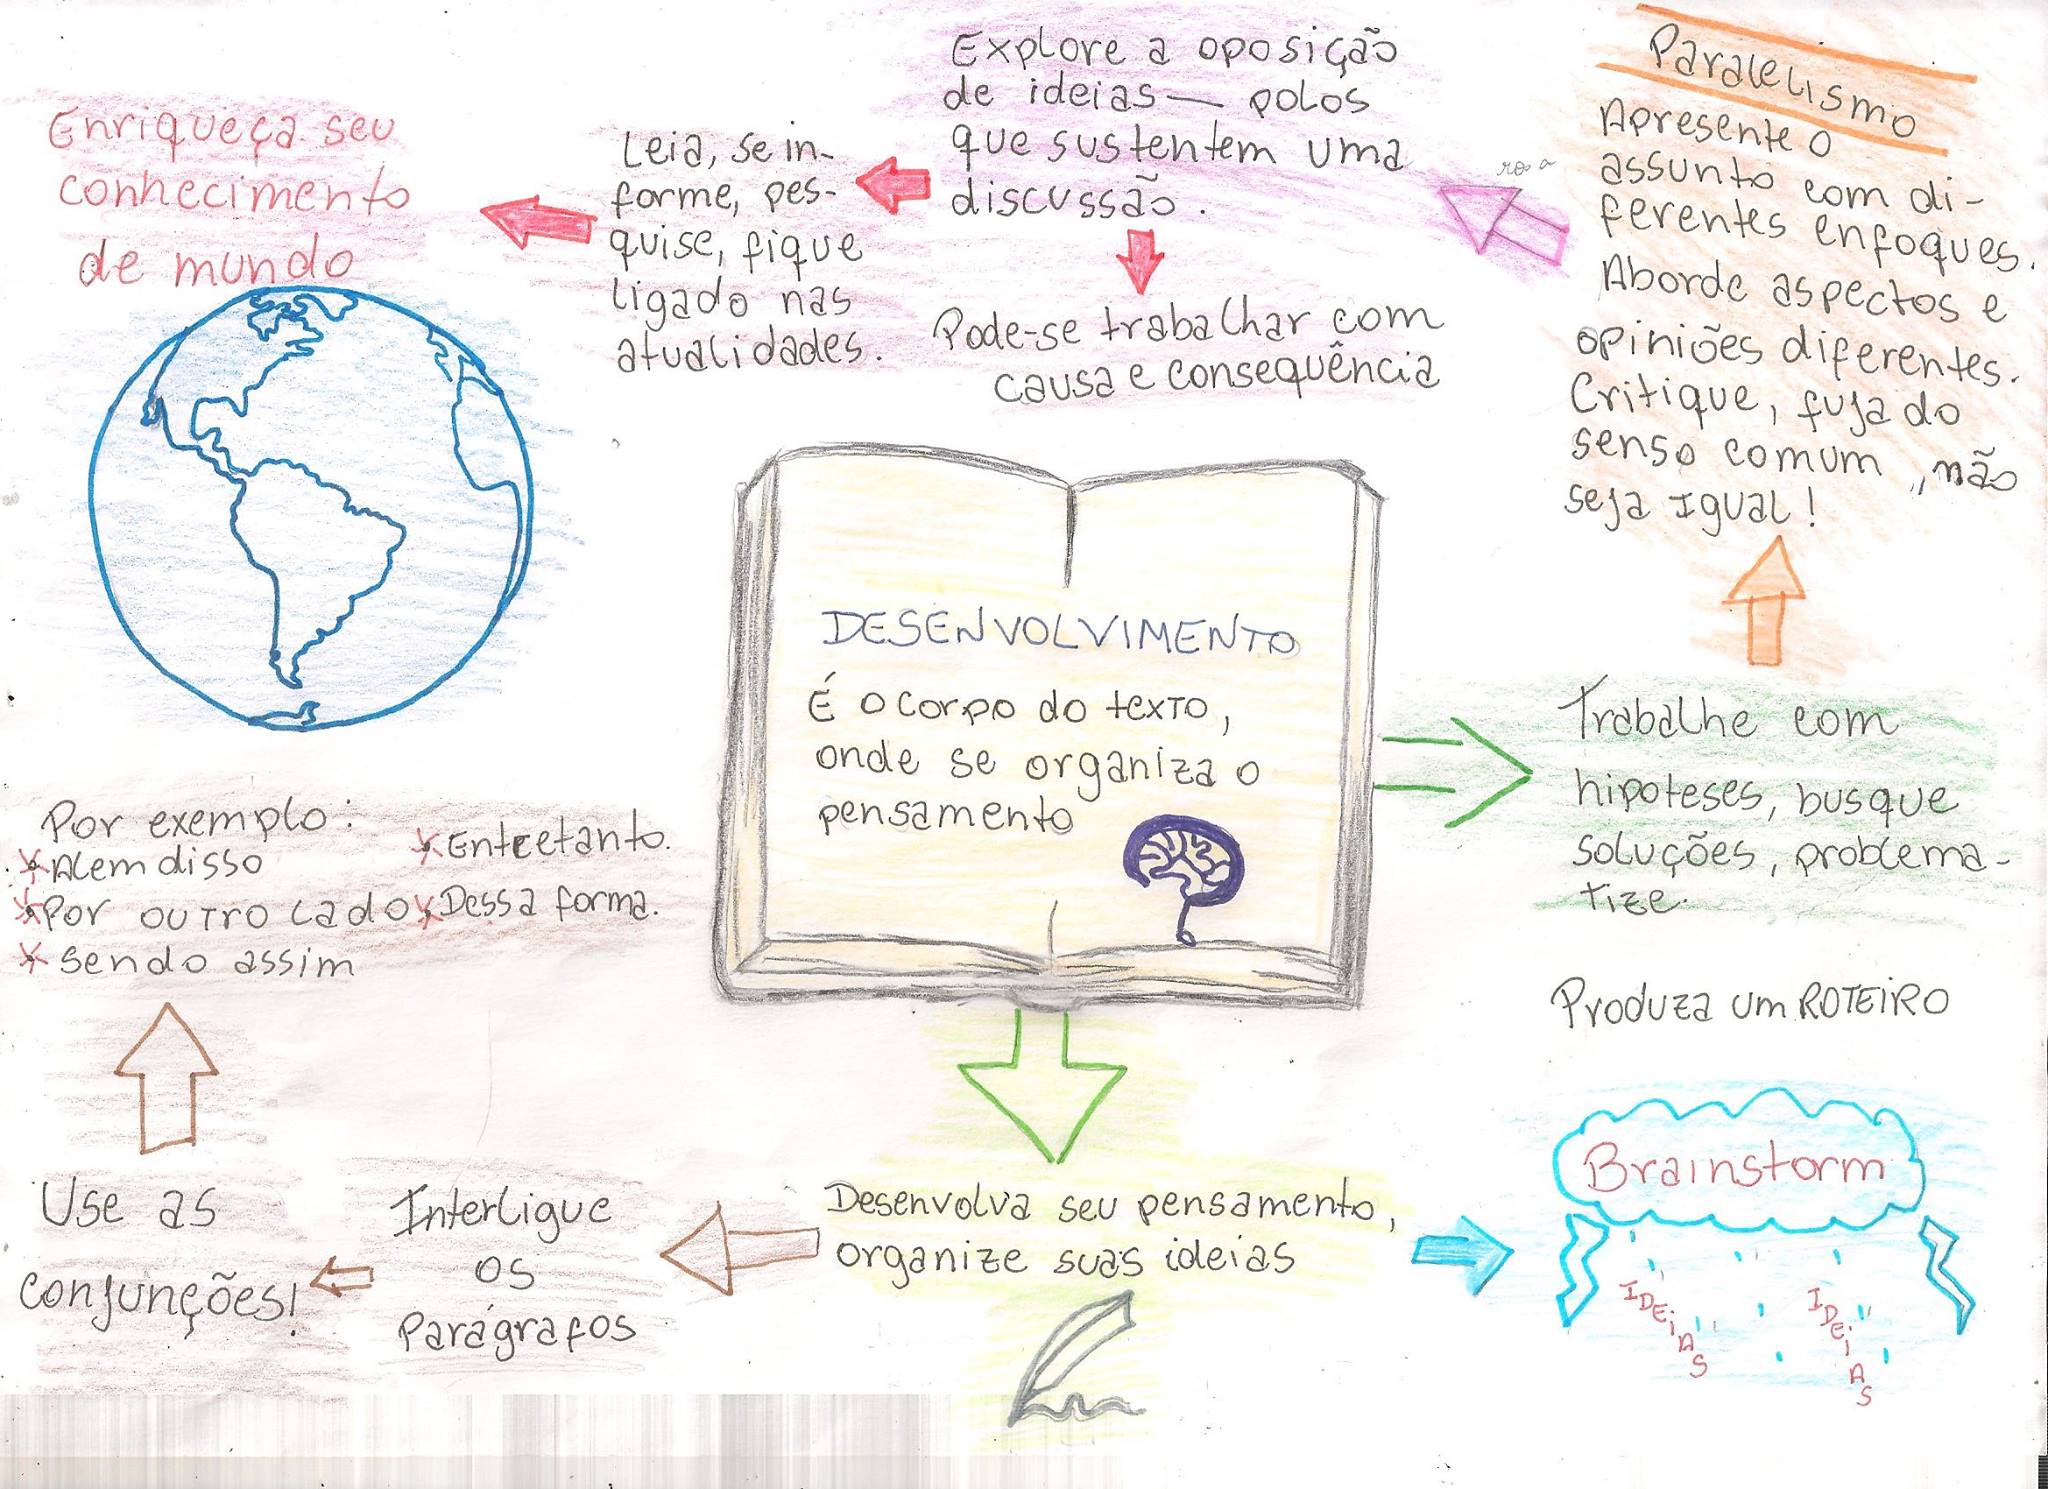 Enriqueça seu
conhecimento
de mundo
Leia, se in-
forme, pes-
quise, fique
ligado nas
atualidades.
Explore a oposição
de ideias — polos
que sustentem uma
discussão.
Pode-se trabalhar com
causa e consequência
Paralelismo
Apresente o
assunto com di-
ferentes enfoques.
Aborde aspectos e
opiniões diferentes.
Critique, fuja do
senso comum, não
seja Igual!
DESENVOLVIMENTO
É o corpo do texto,
onde se organiza o
pensamento
Trabalhe com
hipoteses, busque
soluções, problema-
tize.
Por exemplo:
Alem disso
Por outro lado
Sendo assim
Entretanto.
Dessa forma.
Produza um ROTEIRO
Brainstorm
IDEIAS
IDEIAS
Desenvolva seu pensamento,
organize suas ideias
Interligue
os
Parágrafos
Use as
conjunções!